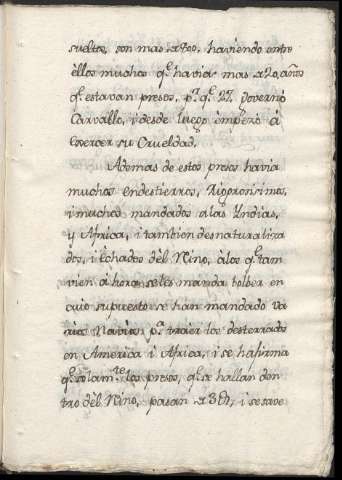 sueltos, son mas de 800, haviendo entre
èllos muchos qᵉ havia mas de 20 años
qᵉ estavan presos, pʳ qᵉ 27 governò
Carvallo, i desde luego èmpezò à
Exercer su Crueldad.
Ademas de estos presos havia
muchos en destierros, Rigorosisimos,
i muchos mandados a las Yndias,
y Africa, i tambien desnaturaliza
dos, i Echados dèl Rino, à los qᵉ tam
vien à hora se les manda bolber en
cuio supuesto se han mandado va
rios Navios pᵃ traier los desterrados
en America i Africa, i se hafirma
qᵉ solamᵗᵉ los presos, qᵉ se hallan den
tro dèl Rino, pasan de 3@, i se save